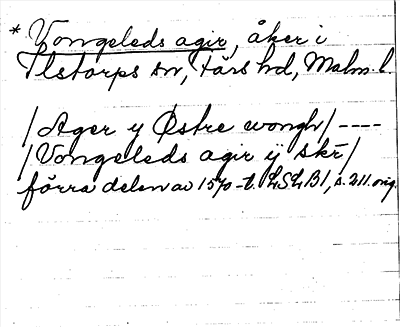 * Vongeleds agir, åker i
Ilstorps sn, Färs hd, Malm. l.
/Ager y Østre wongh/ ----
/Vongeleds agir ÿ skr̄/
förra delen av 1570-t. LSLB1, s. 211. orig.